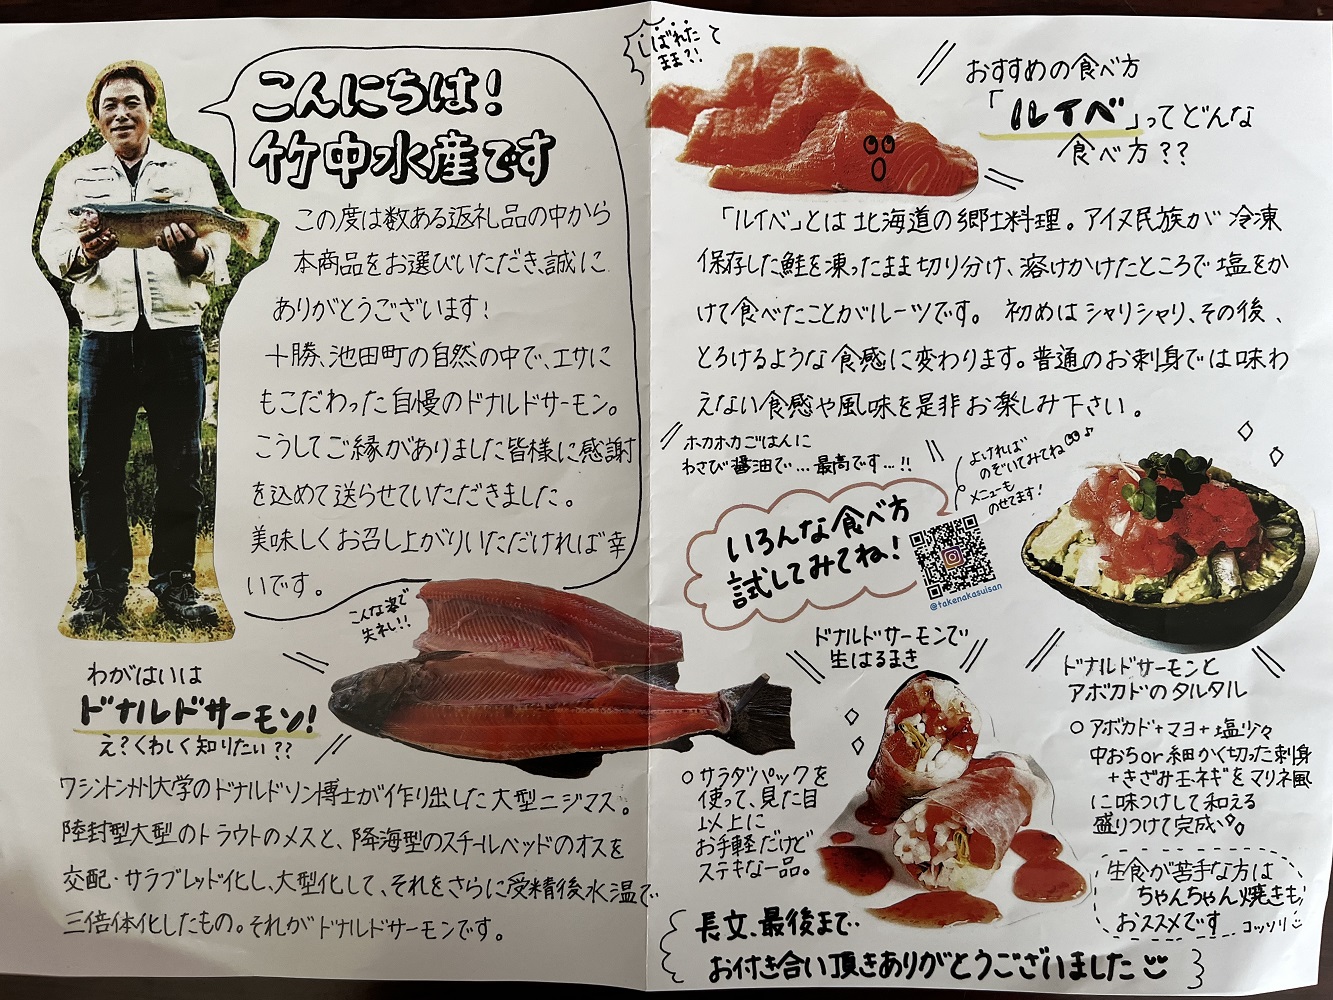 こんにちは!
竹中水産です
この度は数ある返礼品の中から
本商品をお選びいただき、誠に
ありがとうございます!
十勝、池田町の自然の中で、エサに
もこだわった自慢のドナルドサーモン。
こうしてご縁がありました皆様に感謝
を込めて送らせていただきました。
美味しくお召し上がりいただければ幸
いです。
こんな姿で
失礼!!
わがはいは
ドナルドサーモン!
え?くわしく知りたい??
ワシントン州大学のドナルドソン博士が作り出した大型ニジマス。
陸封型大型のトラウトのメスと、降海型のスチールベッドのオスを
交配・サラブレッド化し、大型化して、それをさらに受精後水温で
三倍体化したもの。それがドナルドサーモンです。
しばれた
まま?!
て
おすすめの食べ方
「ルイベ」ってどんな
食べ方??
「ルイベ」とは北海道の郷土料理。アイヌ民族が冷凍
保存した鮭を凍ったまま切り分け、溶けかけたところで塩をか
けて食べたことがルーツです。初めはシャリシャリ、その後、
とろけるような食感に変わります。普通のお刺身では味わ
えない食感や風味を是非お楽しみ下さい。
ホカホカごはんに
わさび醤油で...最高です...!!
よければ
のぞいてみてね♪
メニューも
のせてます!
いろんな食べ方
試してみてね!
@takenakasuisan
ドナルドサーモンで
生はるまき
○サラダパックを
使って、見た目
以上に
お手軽だけど
ステキな一品。
ドナルドサーモンと
アボカドのタルタル
○アボカド+マヨ+塩少々
中おちor細かく切った刺身
+きざみ玉ネギをマリネ風
に味つけして和える
盛りつけて完成
生食が苦手な方は
ちゃんちゃん焼きも
おススメです コッソリ
長文、最後まで
お付き合い頂きありがとうございました